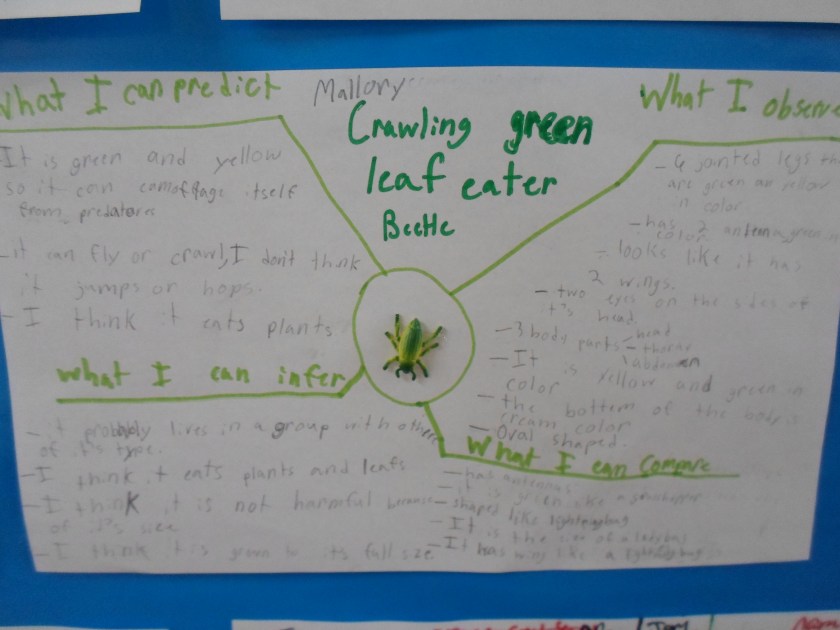 What I can predict
It is green and yellow
so it can camoffage itself
from predators
-it can fly or crawl, I don't think
it jumps or hops.
- I think it eats plants
Mallory
Crawling green
leaf eater
Beetle
What I observe
- 6 jointed legs tha
are green an yellow
n color.
- has 2 antenna green in
color
- looks like it has
2 wings.
- two eyes on the sides of
it's head
- 3 body parts - head
- thorax
\ abdomen
- It is yellow and green in
color
- the bottom of the body is
cream color
- Oval shaped.
What I can infer
- it probably lives in a group with others
of it's type.
- I think it eats plants and leafs
- I think it is not harmful because
of it's size
- I think it is grown to its full size
What I can compare
- has antennas
- it is green like a grasshopper
- shaped like lightningbug
- It is the size of a ladybug
- It has wings like a